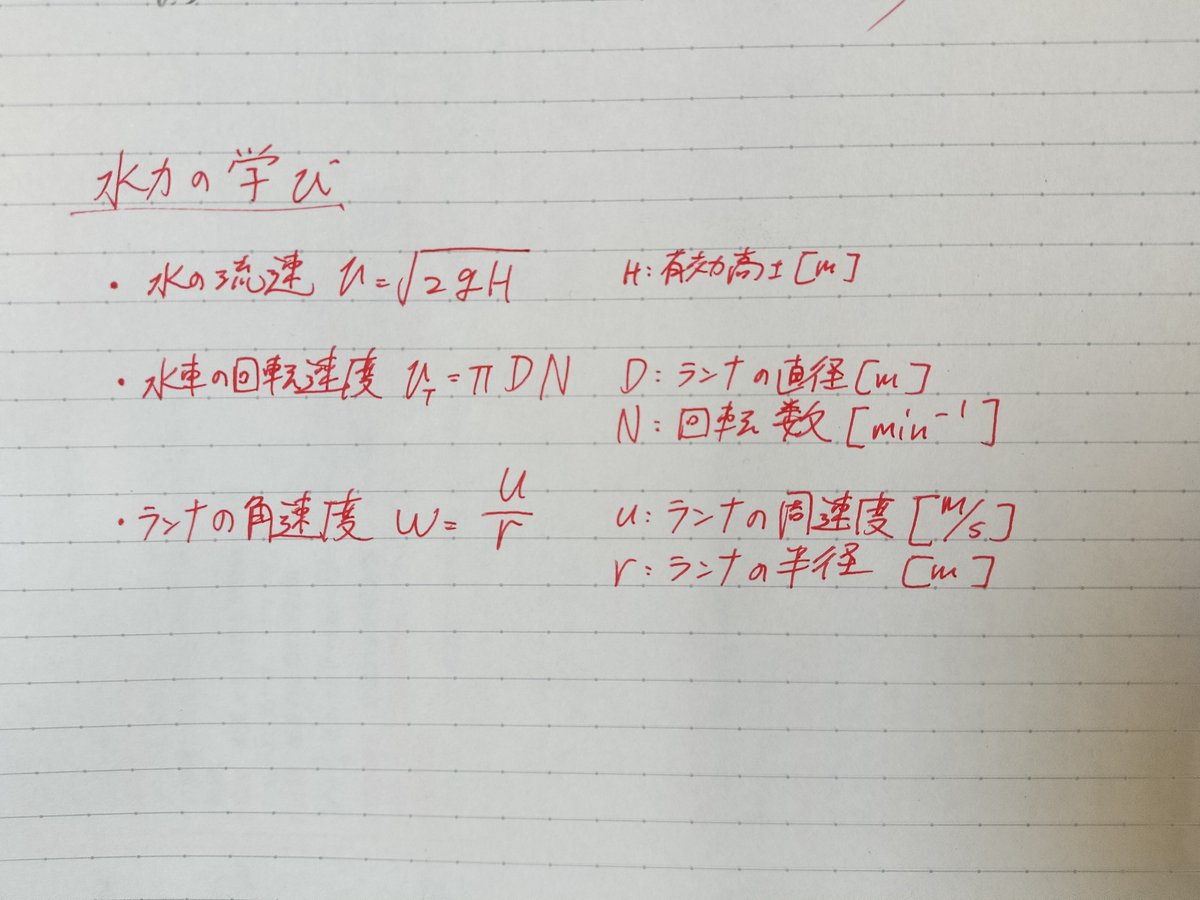 水力の学び
・水の流速 v=√2gH H:有効高さ[m]
・水車の回転速度 v_T=πDN D:ランナの直径[m]
N:回転数[min⁻¹]
・ランナの角速度 ω=u/r u:ランナの周速度[m/s]
r:ランナの半径 [m]